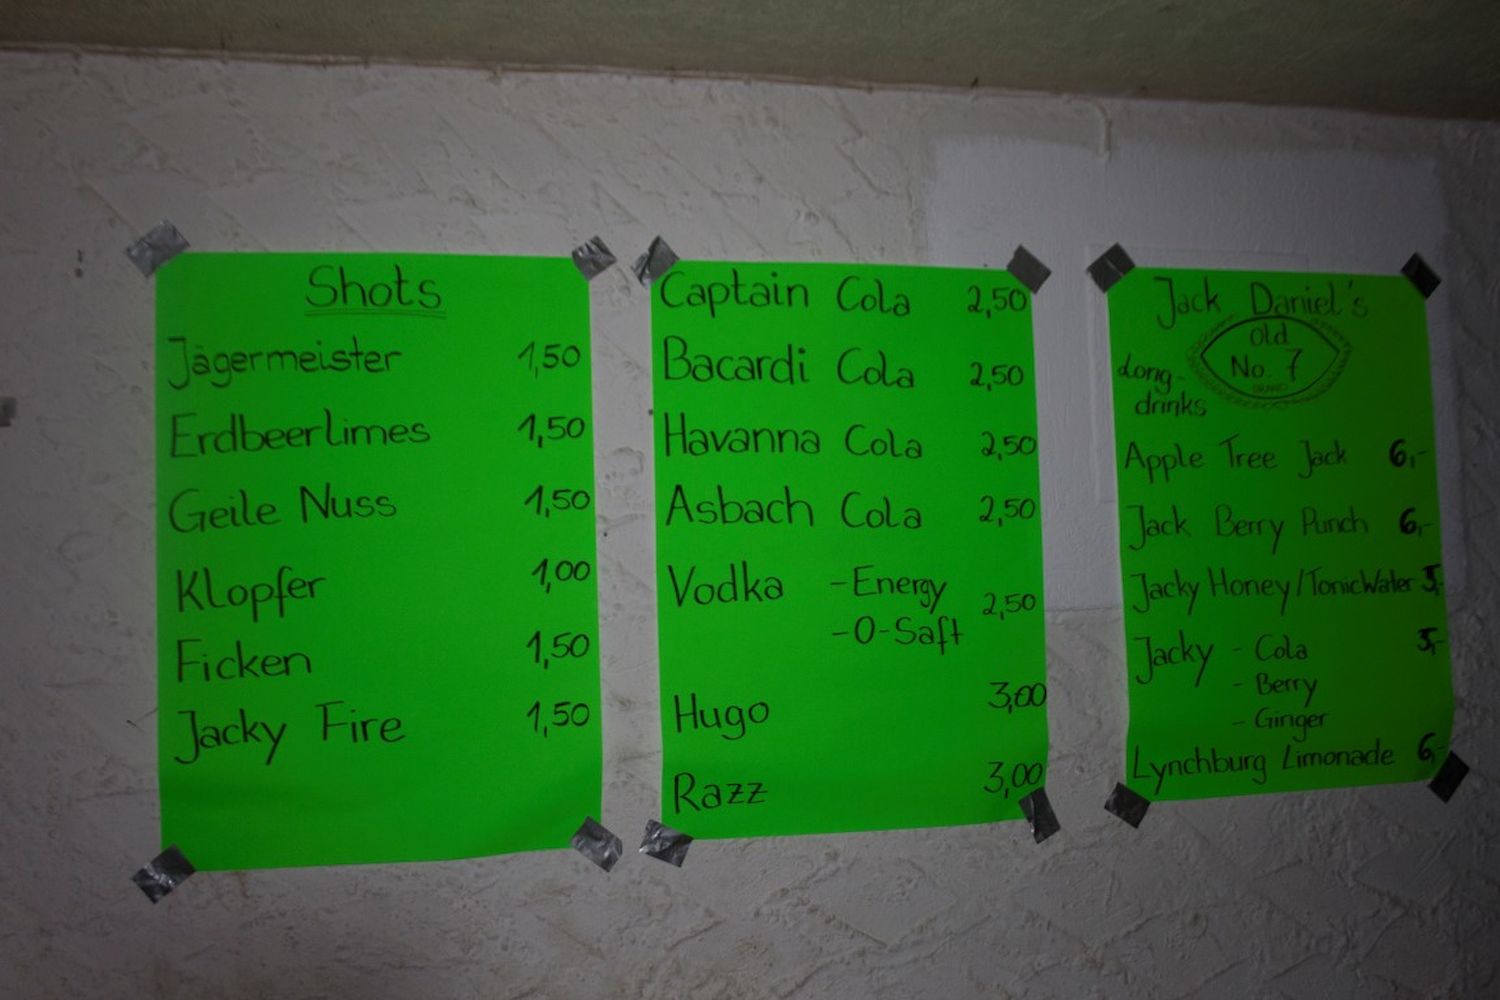 Shots
Jägermeister 1,50
Erdbeerlimes 1,50
Geile Nuss 1,50
Klopfer 1,00
Ficken 1,50
Jacky Fire 1,50
Captain Cola 2,50
Bacardi Cola 2,50
Havanna Cola 2,50
Asbach Cola 2,50
Vodka - Energy 2,50
- O-Saft
Hugo 3,00
Razz 3,00
Jack Daniel's
Old
No. 7
BRAND
Long-
drinks
Apple Tree Jack 6,-
Jack Berry Punch 6,-
Jacky Honey/TonicWater 5,-
Jacky - Cola 5,-
- Berry
- Ginger
Lynchburg Limonade 6,-